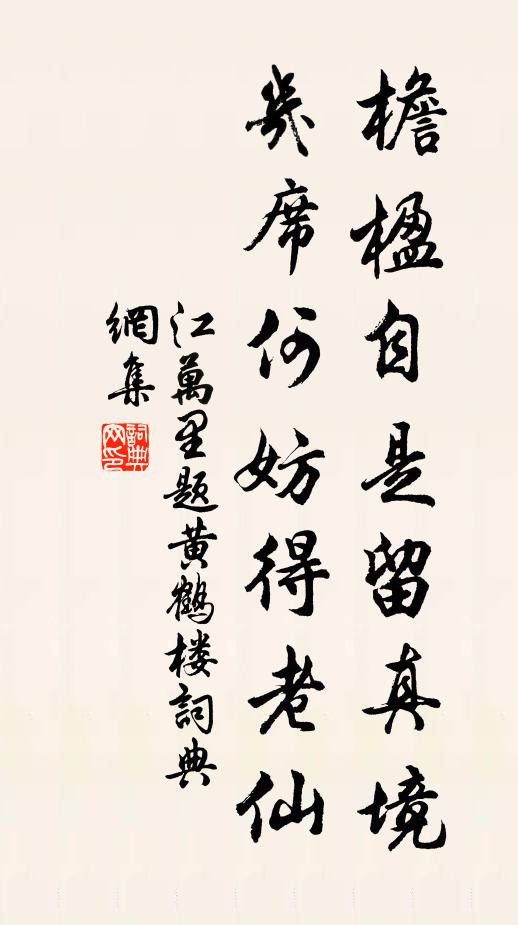 檐楹自是留真境
几席何妨得老仙
江萬里題黄鶴楼詞典
網集
詞典
网印